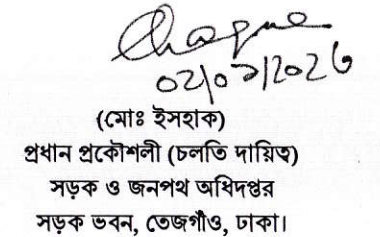 (মোঃ ইসহাক)
প্রধান প্রকৌশলী (চলতি দায়িত্ব)
সড়ক ও জনপথ অধিদপ্তর
সড়ক ভবন, তেজগাঁও, ঢাকা।